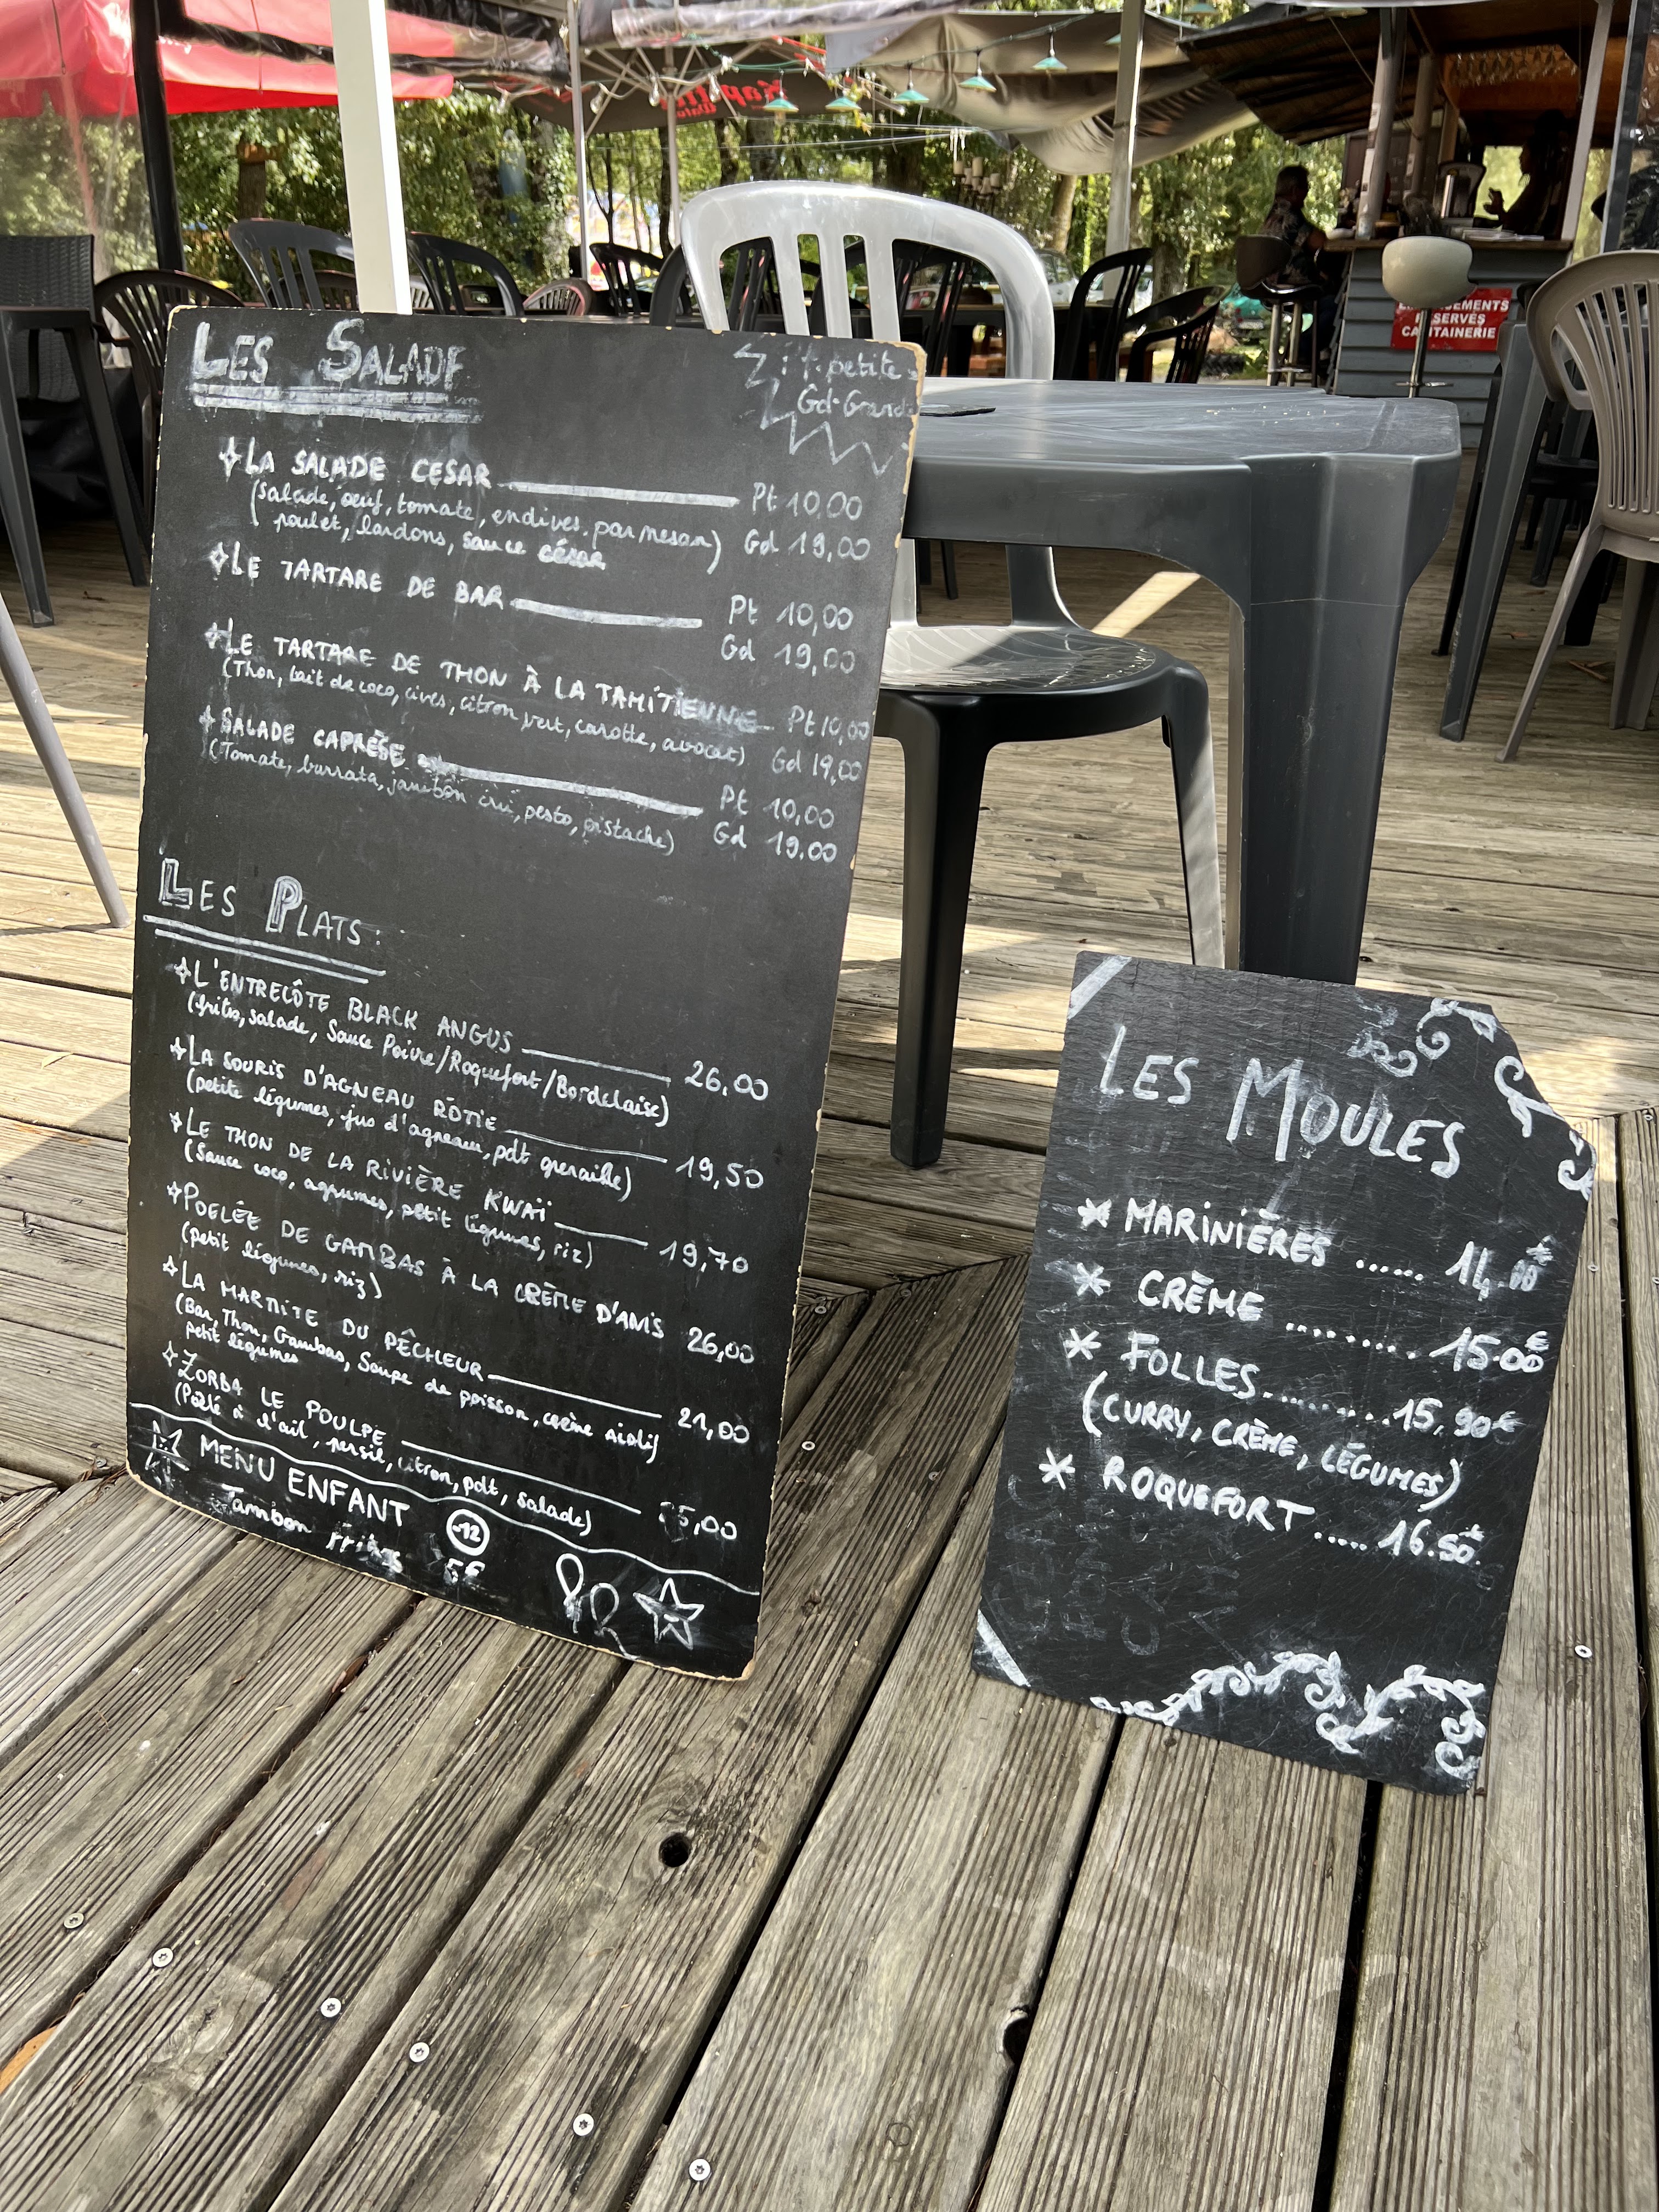 LES SALADE
Pt petite
Gd-Grande
LA SALADE CESAR Pt 10,00
(salade, œuf, tomate, endives, parmesan
poulet, lardons, sauce césar) Gd 19,00
LE TARTARE DE BAR Pt 10,00
Gd 19,00
LE TARTARE DE THON À LA TAHITIENNE Pt 10,00
(Thon, lait de coco, cives, citron vert, carotte, avocat) Gd 19,00
SALADE CAPRÈSE Pt 10,00
(Tomate, burrata, jambon cru, pesto, pistache) Gd 19.00
LES PLATS :
L'ENTRECÔTE BLACK ANGUS 26,00
(frites, salade, Sauce Poivre/Roquefort/Bordelaise)
LA SOURIS D'AGNEAU RÔTIE 19,50
(petite légumes, jus d'agneau, pdt grenaille)
LE THON DE LA RIVIÈRE KWAÏ 19,70
(Sauce coco, agrumes, petit légumes, riz)
POELÉE DE GAMBAS À LA CRÈME D'ANIS 26,00
(petit légumes, riz)
LA MARMITE DU PÊCHEUR 21,00
(Bar, Thon, Gambas, Soupe de poisson, crème aioli,
petit légumes
ZORBA LE POULPE 5,00
(Poêlé à l'ail, persil, citron, pdt, salade)
MENU ENFANT -12
Jambon frites
LES MOULES
* MARINIÈRES ...... 14,00€
* CRÈME .......... 15.00€
* FOLLES........... 15.90€
(CURRY, CRÈME, LÉGUMES)
* ROQUEFORT .... 16.50€